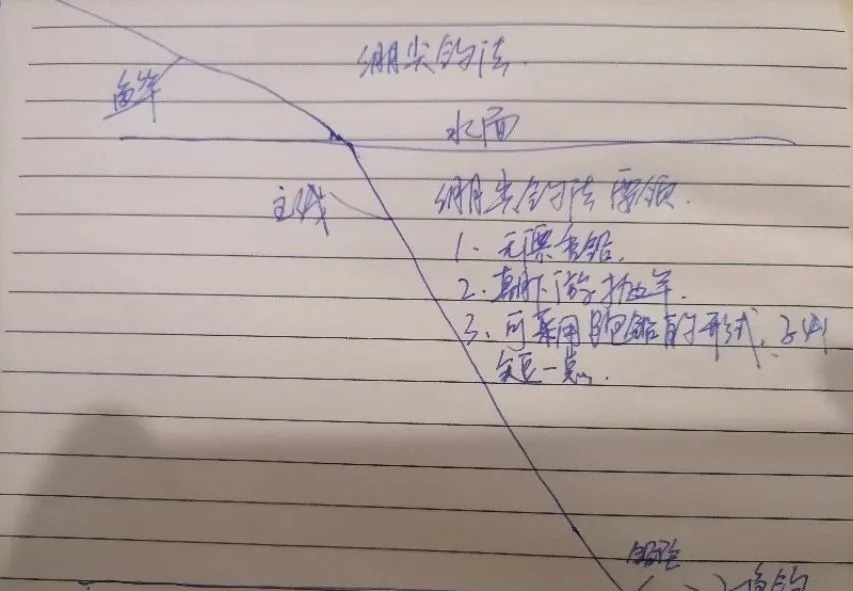 绷尖钓法.
鱼竿
水面
主线
绷尖钓法要领.
1. 无漂重铅.
2. 朝下游抛竿.
3. 可采用跑铅的形式、子线
短一点.
铅坠
鱼钩